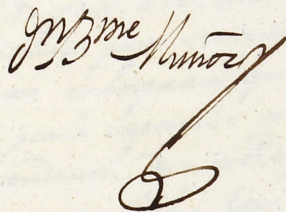 Jn Bme Muñoz